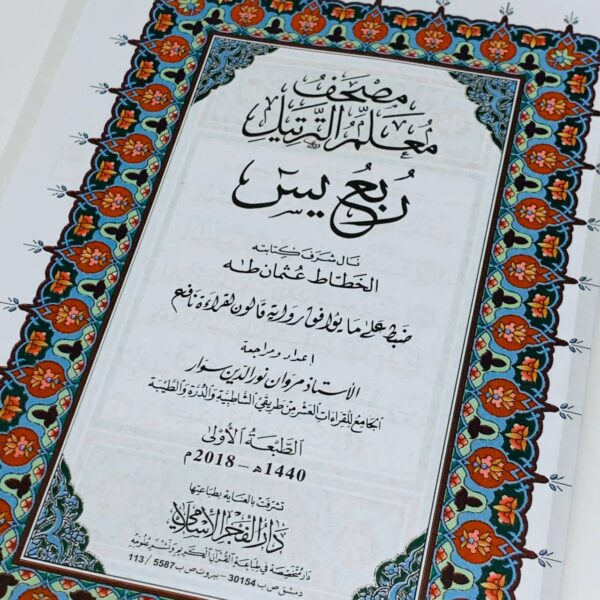 مصحف
معلم الترتيل
ربع يس
نال شرف كتابته
الخطاط عثمان طه
ضبط على ما يوافق رواية قالون لقراءة نافع
إعداد ومراجعة
الأستاذ مروان نور الدين سوار
الجامع للقراءات العشر من طريقي الشاطبية والدرة والطيبة
الطبعة الأولى
1440هـ - 2018م
تشرفت بالعناية بطباعتها
دار الفجر الإسلامي
دار متخصصة في طباعة القرآن الكريم وأنشر علومه
دمشق ص ب 30154 - بيروت ص ب 5587 / 113